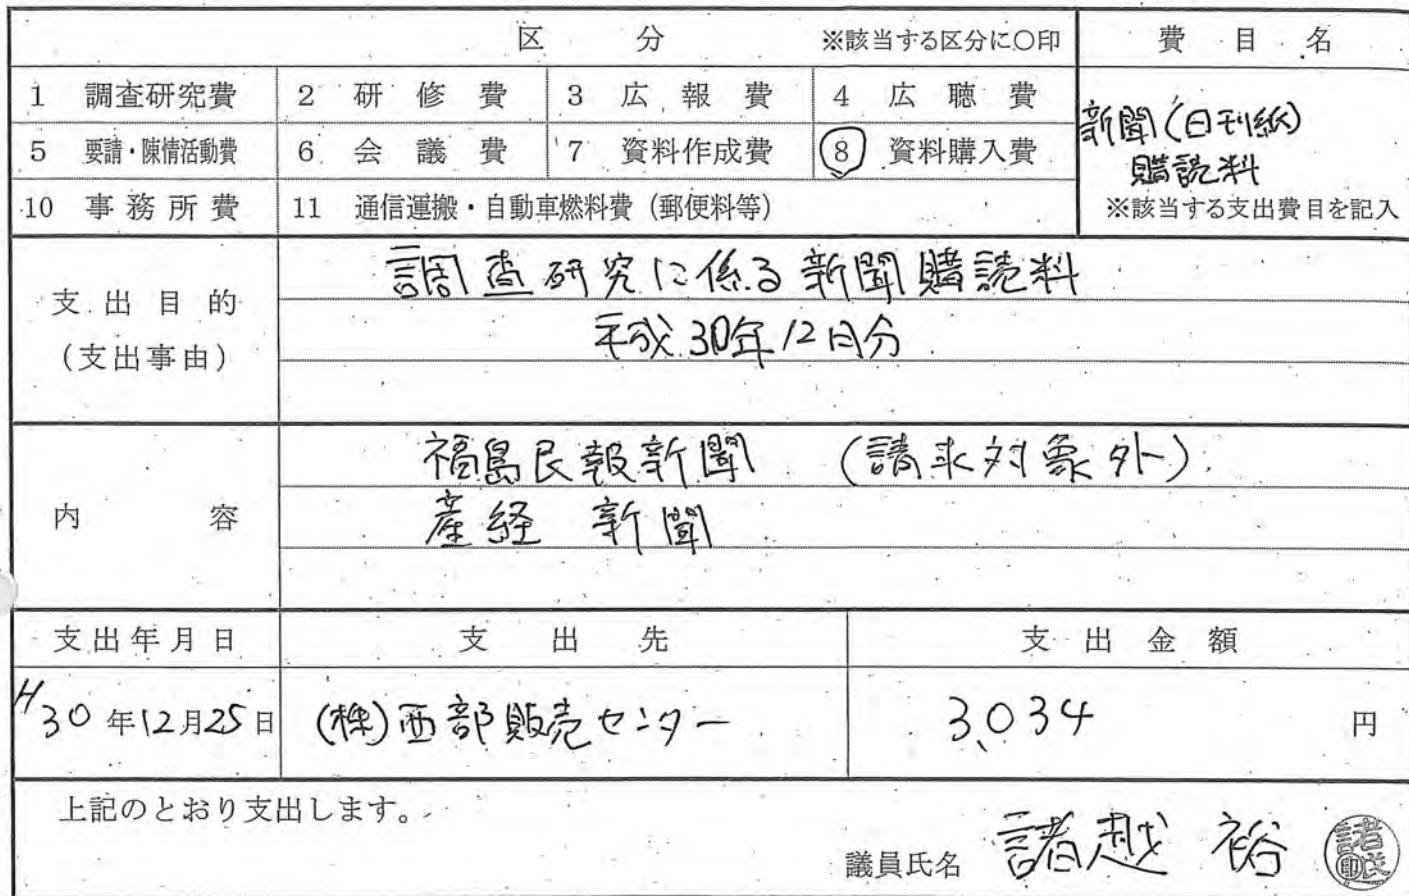 区分 ※該当する区分に〇印 費目名
1 調査研究費 2 研修費 3 広報費 4 広聴費
新聞(日刊紙)
5 要請・陳情活動費 6 会議費 7 資料作成費 8 資料購入費
購読料
10 事務所費 11 通信運搬・自動車燃料費(郵便料等) ※該当する支出費目を記入
調査研究に係る新聞購読料
支出目的
平成30年12月分
(支出事由)
福島民報新聞 (請求対象外)
内容
産経 新聞
支出年月日 支出先 支出金額
H30年12月25日 (株)西部販売センター 3,034 円
上記のとおり支出します。
議員氏名 諸越 裕